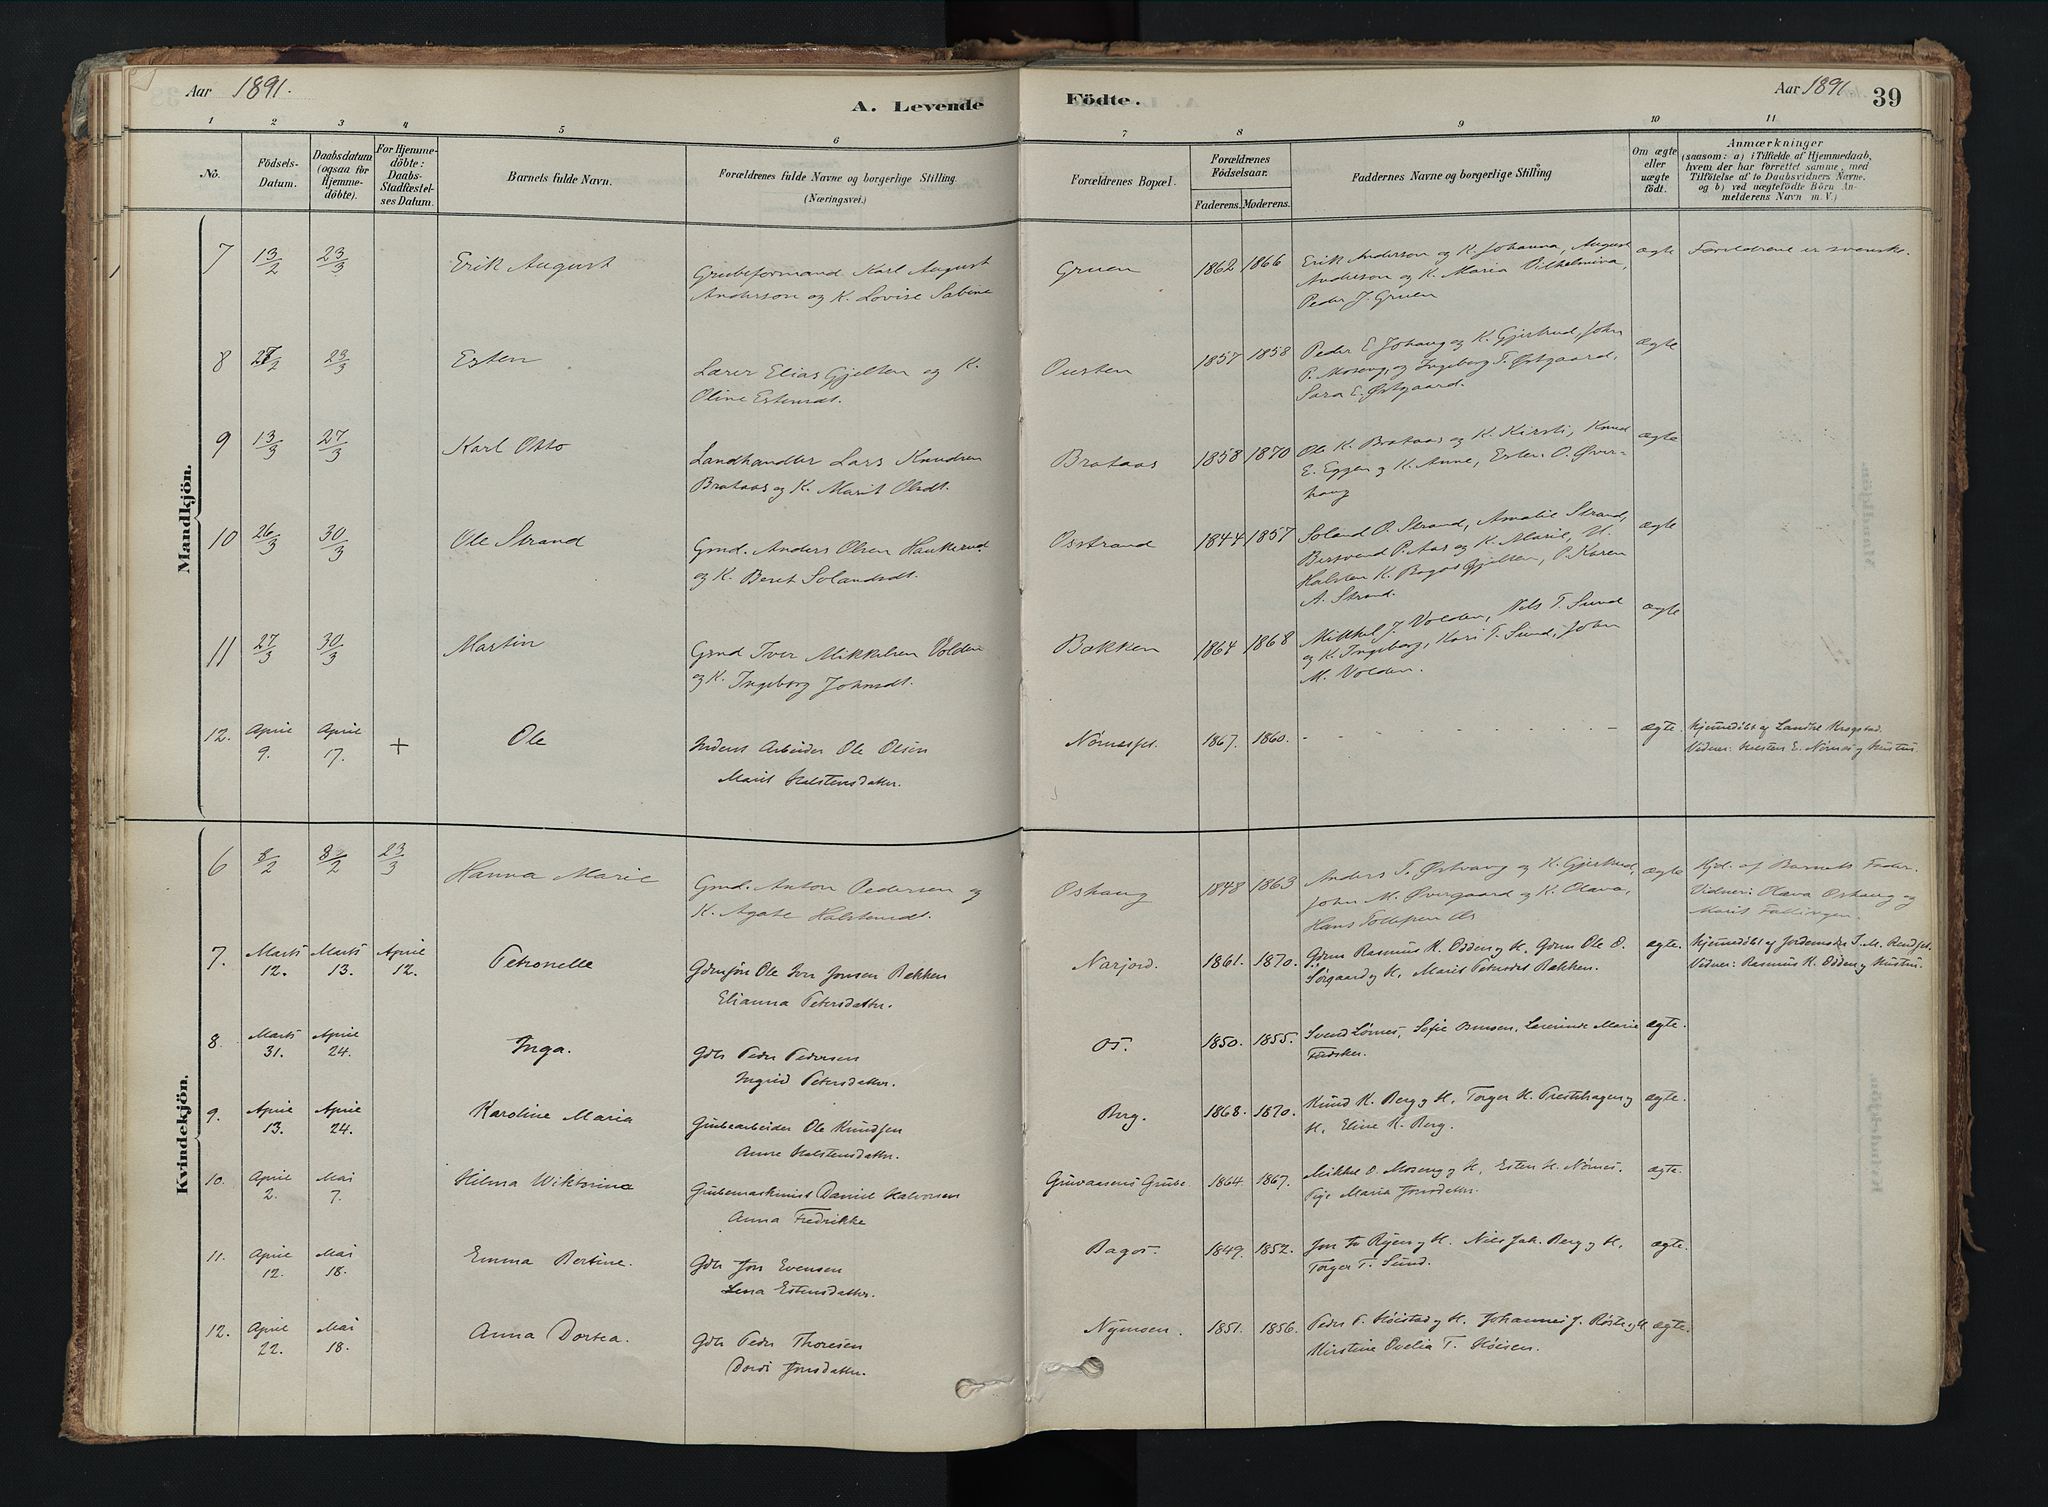 Aar 1891.
A. Levende
Födte.
Aar 1891
39
1 2 3 4 5 6 7 8 9 10 11
No.
Födsels-
Datum.
Daabsdatum
(ogsaa for
Hjemme-
döbte).
For Hjemme-
döbte:
Daabs-
Stadfæstel-
ses Datum.
Barnets fulde Navn.
Forældrenes fulde Navne og borgerlige Stilling.
(Næringsvei.)
Forældrenes Bopæl.
Forældrenes
Födselsaar.
Faderens. Moderens.
Faddernes Navne og borgerlige Stilling
Om ægte
eller
uægte
födt.
Anmærkninger
(saasom: a) i Tilfælde af Hjemmedaab,
hvem der har forrettet samme, med
Tilföielse af to Daabsvidners Navne,
og b) ved uægtefödte Börn An-
melderens Navn m. V.)
Mandkjön.
7 13/2 23/3 Erik August
Grubeformand Karl August
Anderson og K. Lovise Sabine
Gruen 1862 1866
Erik Anderson og K. Johanna, August
Anderson og K. Maria Vilhelmina,
Peder J. Gruen
ægte
Forældrene er svenske.
8 23/3 Esten
Lærer Elias Gjelten og K.
Oline Estensdt.
Ousten 1857 1858
Peder E. Johaug og K. Gjertrud, John
P. Moseng, og Ingeborg T. Østgaard,
Sara E. Østgaard.
ægte
9 13/3 27/3 Karl Otto
Landhandler Lars Knudsen
Brataas og K. Marit Olsdt.
Brataas 1858 1870
Ole K. Brataas og K. Kirsti, Knud
E. Eggen og K. Anne, Esten O. Øver-
haug
ægte
10 26/3 30/3 Ole Strand
Gmd. Anders Olsen Haukerud
og K. Beret Solandsdt.
Osstrand 1844 1857
Soland O. Strand, Amalie Strand,
Bersvend P. Aas og K. Marie, U.
Halsten K. Bagos Gjelten, P. Karen
A. Strand.
ægte
11 27/3 30/3 Martin
Gmd Iver Mikkelsen Volden
og K. Ingeborg Johnsdt.
Bakken 1864 1868
Mikkel J. Volden, Nils T. Sund
og K. Ingeborg, Kari T. Sund, John
M. Volden.
ægte
12. April 9. April 17. + Ole
Inderst Arbeider Ole Olsen
Marit Halstensdatter.
1867. 1860.
ægte.
Hjemmedöbt af Landhl. Krogstad.
Vidner: Halsten E. Nørnæs og Hustru
Kvindekjön.
6 8/2 8/2 23/3 Hanna Marie
Gmd. Anton Pedersen og
K. Agate Halstensdt.
Oshaug 1848 1863
Anders T. Østvang og K. Gjertrud,
John M. Øvergaard og K. Olava,
Hans Tollefsen Os
ægte
Hjd. af Barnets Fader.
Vidner: Olava Oshaug og
Marit Fallingen.
7. Marts 12. Marts 13. April 12. Petronelle
Ole Iver Jonsen Bekken
Elianna Petersdatter.
Narjord. 1861. 1870.
Gdm Rasmus H. Odden og H. Gdm Ole O.
Sørgaard og H. Marit Bakken.
ægte.
Hjemmedöbt af Jordemoder
Vidner: Rasmus H. Odden og Hustru.
8. Marts 31. April 24. Inga.
Gdb Peder Pedersen
Ingrid Petersdatter.
Os. 1850. 1855.
Svend Lörnes, Sofie Marie
ægte.
9. April 13. April 24. Karoline Maria
Grubearbeider Ole Knudsen
Anne Halstensdatter.
Berg. 1868. 1870.
Knud H. Berg og H. Torger H. Prestehagen og
H. Eline K. Berg.
ægte.
10. April 2. Mai 7. Hilma Wiktorina
Grubemaskinist Daniel Halvorsen
Anna Fredrikke
Gruvaasens Grube. 1864. 1867.
Mikkel O. Moseng og H. Esten H. Nørnes.
Pige Maria Jonsdatter.
ægte.
11. April 12. Mai 18. Emma Bertine.
Gdb Jon Evensen
Lena Estensdatter.
Bagos. 1849. 1852.
Jon Ryen og H. Nils Joh. Berg og H.
Torger T. Sund.
ægte.
12. April 22. Mai 18. Anna Dortea.
Gdb Peder Thoresen
Dordi Jonsdatter.
Nymoen. 1851. 1856.
Peder T. Höistad og H. Johannes J. Röste og H
Kirstine Ovelia T. Höisen.
ægte.